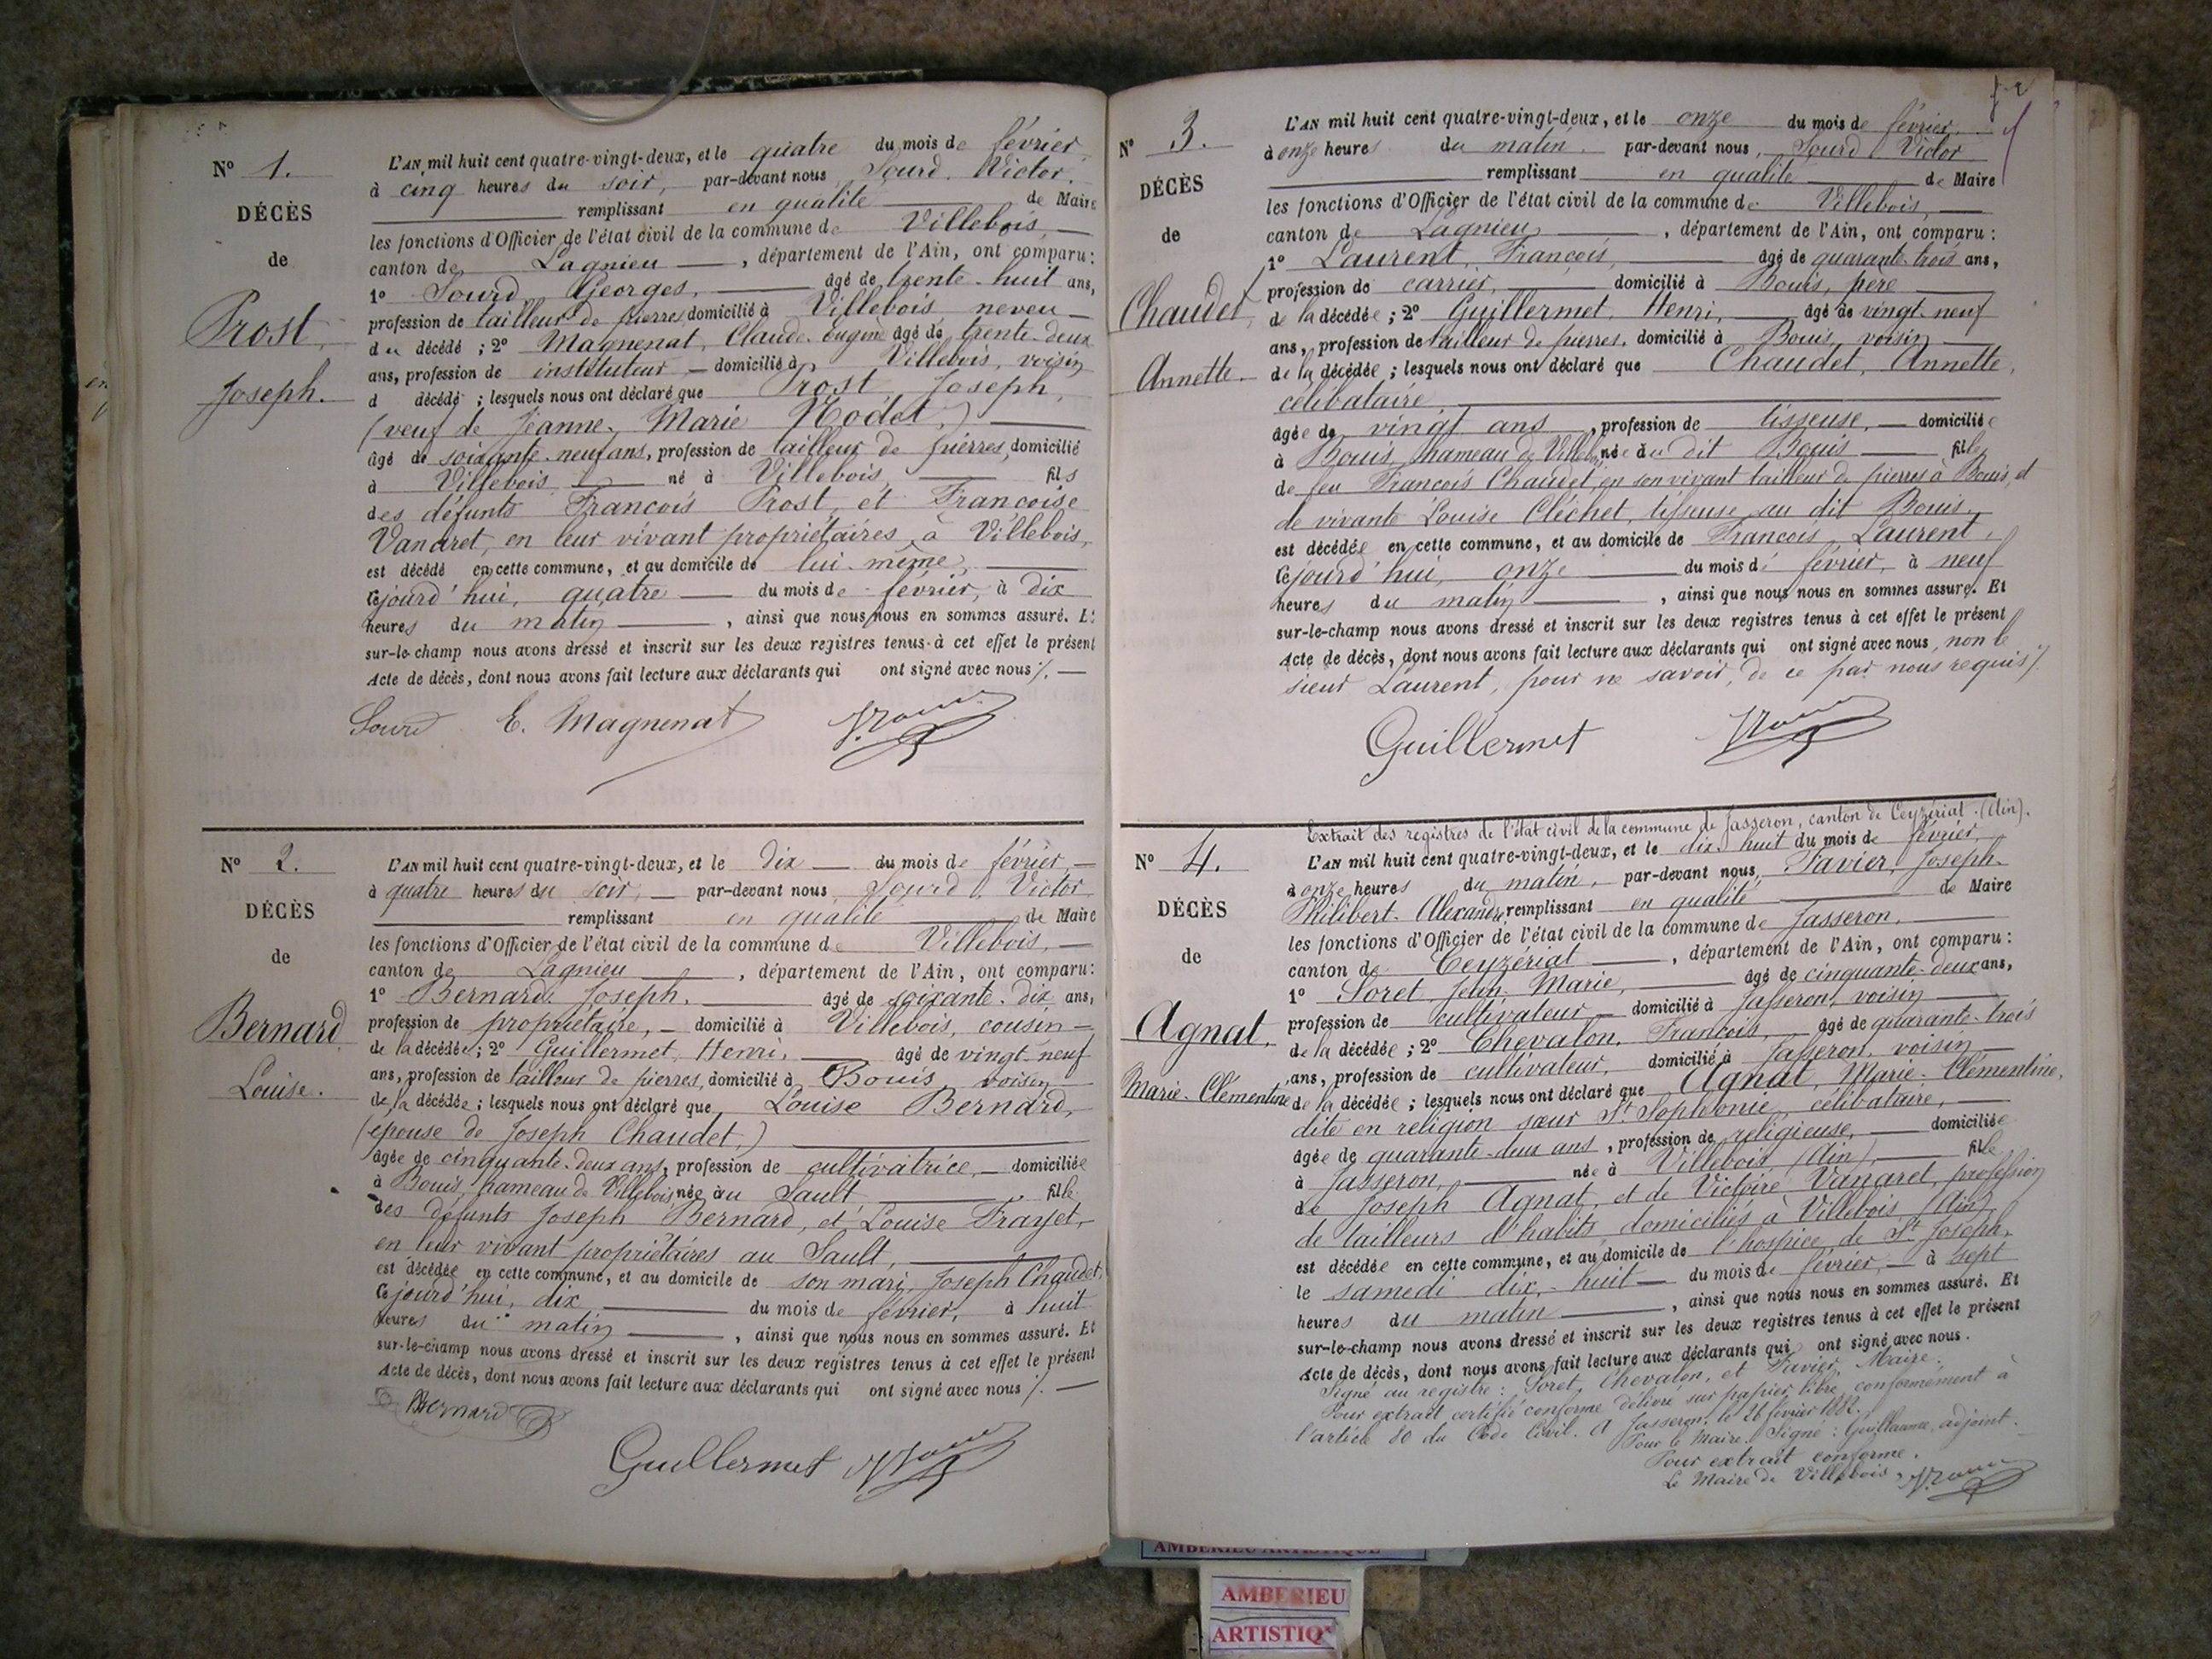 N° 1.
DÉCÈS
de
Prost,
Joseph.
L'AN mil huit cent quatre-vingt-deux, et le quatre du mois de février
à cinq heures du soir, par-devant nous Sourd, Victor,
remplissant en qualité de Maire
les fonctions d'Officier de l'état civil de la commune de Villebois,
canton de Lagnieu, département de l'Ain, ont comparu:
1° Sourd Georges, âgé de trente-huit ans,
profession de tailleur de pierres, domicilié à Villebois, neveu
du décédé; 2° Magnenat, Claude-Eugène âgé de trente-deux
ans, profession de instituteur domicilié à Villebois, voisin
d décédé; lesquels nous ont déclaré que Prost, Joseph,
(veuf de Jeanne-Marie Rodet,)
âgé de soixante-neuf ans, profession de tailleur de pierres, domicilié
à Villebois né à Villebois, fils
des défunts François Prost, et Françoise
Vanaret, en leur vivant propriétaires à Villebois,
est décédé en cette commune, et au domicile de lui-même,
cejourd'hui, quatre du mois de février, à dix
heures du matin, ainsi que nous nous en sommes assuré. Et
sur-le-champ nous avons dressé et inscrit sur les deux registres tenus à cet effet le présent
Acte de décès, dont nous avons fait lecture aux déclarants qui ont signé avec nous ./.
Sourd E. Magnenat
N° 2.
DÉCÈS
de
Bernard
Louise.
L'AN mil huit cent quatre-vingt-deux, et le dix du mois de février,
à quatre heures du soir, par-devant nous, Sourd, Victor
remplissant en qualité de Maire
les fonctions d'Officier de l'état civil de la commune de Villebois,
canton de Lagnieu, département de l'Ain, ont comparu:
1° Bernard, Joseph, âgé de soixante-dix ans,
profession de propriétaire, domicilié à Villebois, cousin
de la décédée; 2° Guillermet, Henri, âgé de vingt-neuf
ans, profession de tailleur de pierres, domicilié à Bouis, voisin
de la décédée; lesquels nous ont déclaré que Louise Bernard,
(épouse de Joseph Chaudet)
âgée de cinquante-deux ans, profession de cultivatrice, domiciliée
à Bouis, hameau de Villebois née au Sault fille
des défunts Joseph Bernard, et Louise Trayet,
en leur vivant propriétaires au Sault,
est décédée en cette commune, et au domicile de son mari, Joseph Chaudet,
cejourd'hui, dix du mois de février, à huit
heures du matin, ainsi que nous nous en sommes assuré. Et
sur-le-champ nous avons dressé et inscrit sur les deux registres tenus à cet effet le présent
Acte de décès, dont nous avons fait lecture aux déclarants qui ont signé avec nous ./.
Bernard
Guillermet
N° 3.
DÉCÈS
de
Chaudet,
Annette
L'AN mil huit cent quatre-vingt-deux, et le onze du mois de février,
à onze heures du matin, par-devant nous, Sourd Victor
remplissant en qualité de Maire
les fonctions d'Officier de l'état civil de la commune de Villebois,
canton de Lagnieu, département de l'Ain, ont comparu:
1° Laurent, François, âgé de quarante-trois ans,
profession de carrier, domicilié à Bouis, père
de la décédée; 2° Guillermet, Henri, âgé de vingt-neuf
ans, profession de tailleur de pierres, domicilié à Bouis, voisin
de la décédée; lesquels nous ont déclaré que Chaudet, Annette,
célibataire
âgée de vingt ans, profession de tisseuse, domiciliée
à Bouis, hameau de Villebois née au dit Bouis fille
de feu François Chaudet, en son vivant tailleur de pierres à Bouis, et
de vivante Louise Cléchet, tisseuse au dit Bouis,
est décédée en cette commune, et au domicile de François Laurent,
cejourd'hui, onze du mois de février, à neuf
heures du matin, ainsi que nous nous en sommes assuré. Et
sur-le-champ nous avons dressé et inscrit sur les deux registres tenus à cet effet le présent
Acte de décès, dont nous avons fait lecture aux déclarants qui ont signé avec nous, non le
sieur Laurent, pour ne savoir, de ce par nous requis ./.
Guillermet
N° 4.
DÉCÈS
de
Agnat,
Marie-Clémentine
Extrait des registres de l'état civil de la commune de Jasseron, canton de Ceyzériat (Ain).
L'AN mil huit cent quatre-vingt-deux, et le dix-huit du mois de février,
à onze heures du matin, par-devant nous, Favier, Joseph-
Philibert-Alexandre, remplissant en qualité de Maire
les fonctions d'Officier de l'état civil de la commune de Jasseron,
canton de Ceyzériat, département de l'Ain, ont comparu:
1° Soret Jean-Marie, âgé de cinquante-deux ans,
profession de cultivateur domicilié à Jasseron, voisin
de la décédée; 2° Chevalon, François, âgé de quarante-trois
ans, profession de cultivateur, domicilié à Jasseron, voisin
de la décédée; lesquels nous ont déclaré que Agnat, Marie-Clémentine,
dite en religion sœur St Sophronie, célibataire,
âgée de quarante-deux ans, profession de religieuse, domiciliée
à Jasseron, née à Villebois (Ain), fille
de Joseph Agnat, et de Victoire Vanaret, profession
de tailleurs d'habits, domiciliés à Villebois (Ain)
est décédée en cette commune, et au domicile de l'hospice de St Joseph,
le samedi dix-huit du mois de février, à sept
heures du matin, ainsi que nous nous en sommes assuré. Et
sur-le-champ nous avons dressé et inscrit sur les deux registres tenus à cet effet le présent
Acte de décès, dont nous avons fait lecture aux déclarants qui ont signé avec nous.
Signé au registre: Soret, Chevalon, et Favier, Maire.
Pour extrait certifié conforme délivré sur papier libre conformément à
l'article 80 du Code Civil. A Jasseron, le 26 février 1882.
Pour le Maire. Signé: Guillaume, adjoint.
Pour extrait conforme.
Le Maire de Villebois,
AMBERIEU ARTISTIQUE
AMBERIEU
ARTISTIQ